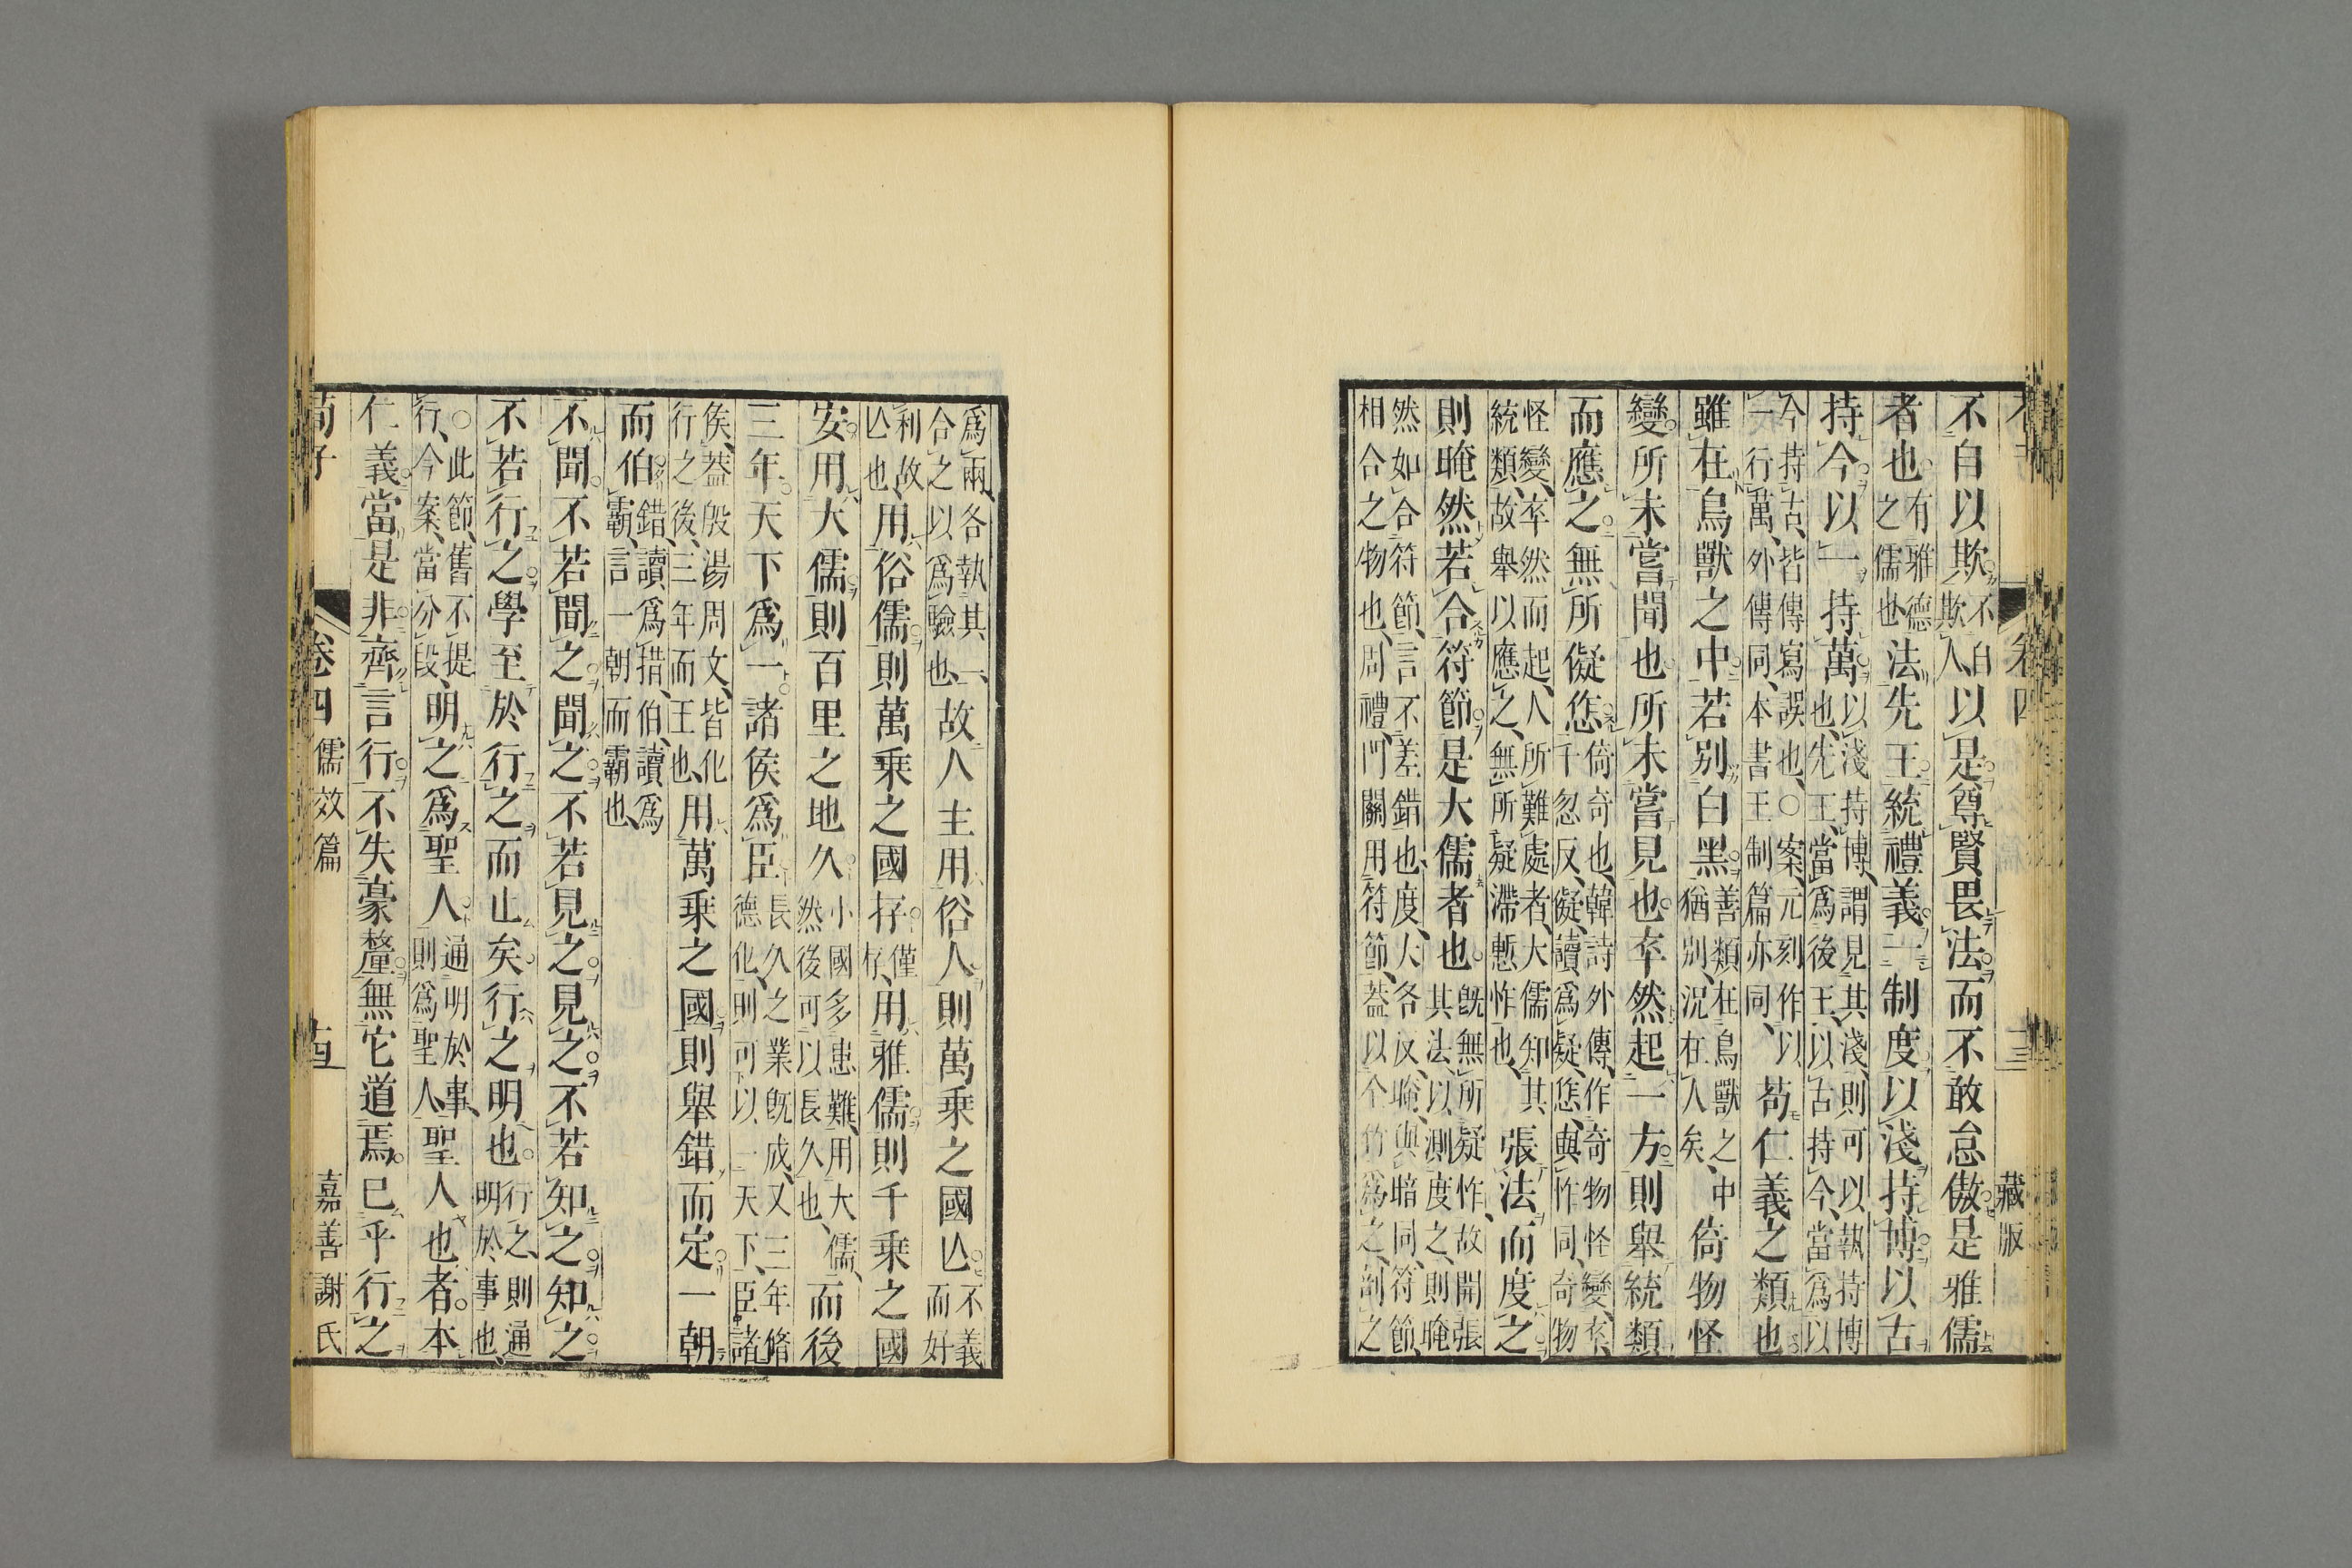 不自以欺不自欺人以是尊賢畏法而不敢怠傲是雅儒
者也有雅德之儒也法先王統禮義一制度以淺持博以古
持今以一持萬以淺持博謂見其淺則可以執持博也先王當爲後王以古持今當爲以
今持古皆傳寫誤也○案元刻作以一行萬外傳同本書王制篇亦同苟仁義之類也
雖在鳥獸之中若别白黑善類在鳥獸之中猶别况在人矣倚物怪
變所未嘗聞也所未嘗見也卒然起一方則舉統類
而應之無所儗㤰倚奇也韓詩外傳作奇物怪變卒千忽反儗讀爲疑㤰與怍同奇物
怪變卒然而起人所難處者大儒知其統類故舉以應之無所疑滯慙怍也張法而度之
則晻然若合符節是大儒者也旣無所疑怍故開張其法以測度之則晻
然如合符節言不差錯也度大各反晻與暗同符節相合之物也周禮門關用符節蓋以全竹爲之剖之
藏版
爲兩各執其一合之以爲驗也故人主用俗人則萬乗之國亾不義而好
利故亾也用俗儒則萬乗之國存僅存用雅儒則千乗之國
安用大儒則百里之地久小國多患難用大儒然後可以長久也而後
三年天下爲一諸侯爲臣長久之業旣成又三年脩德化則可以一天下臣諸
侯蓋殷湯周文皆化行之後三年而王也用萬乗之國則舉錯而定一朝
而伯錯讀爲措伯讀爲霸言一朝而霸也
不聞不若聞之聞之不若見之見之不若知之知之
不若行之學至於行之而止矣行之明也行之則通明於事也
○此節舊不提行今案當分段明之爲聖人通明於事則爲聖人聖人也者本
仁義當是非齊言行不失豪釐無它道焉已乎行之
荀子 卷四 儒效篇 嘉善謝氏